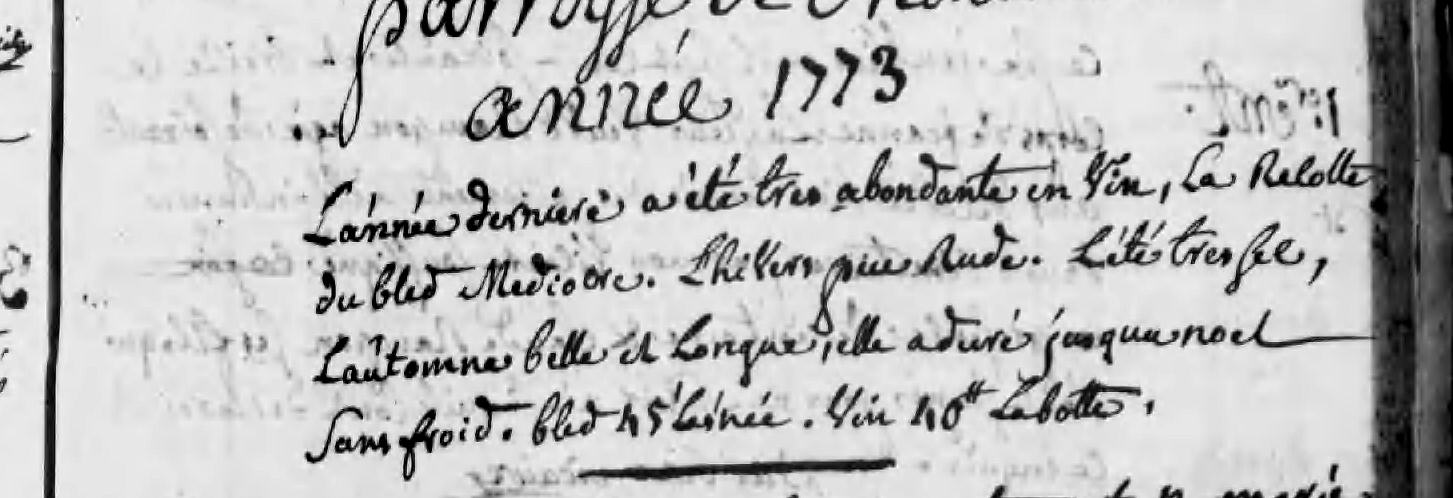 parroisse de
année 1773
L'année derniere a été tres abondante en Vin, La Recolte
du bled Mediocre. L'hiVers peu Rude. L'été tres sec,
L'autômne belle et Longue, elle a duré jusqu'a noel
Sans froid. bled 45ˢ L'asnée. Vin 40ᵗᵗ La botte.